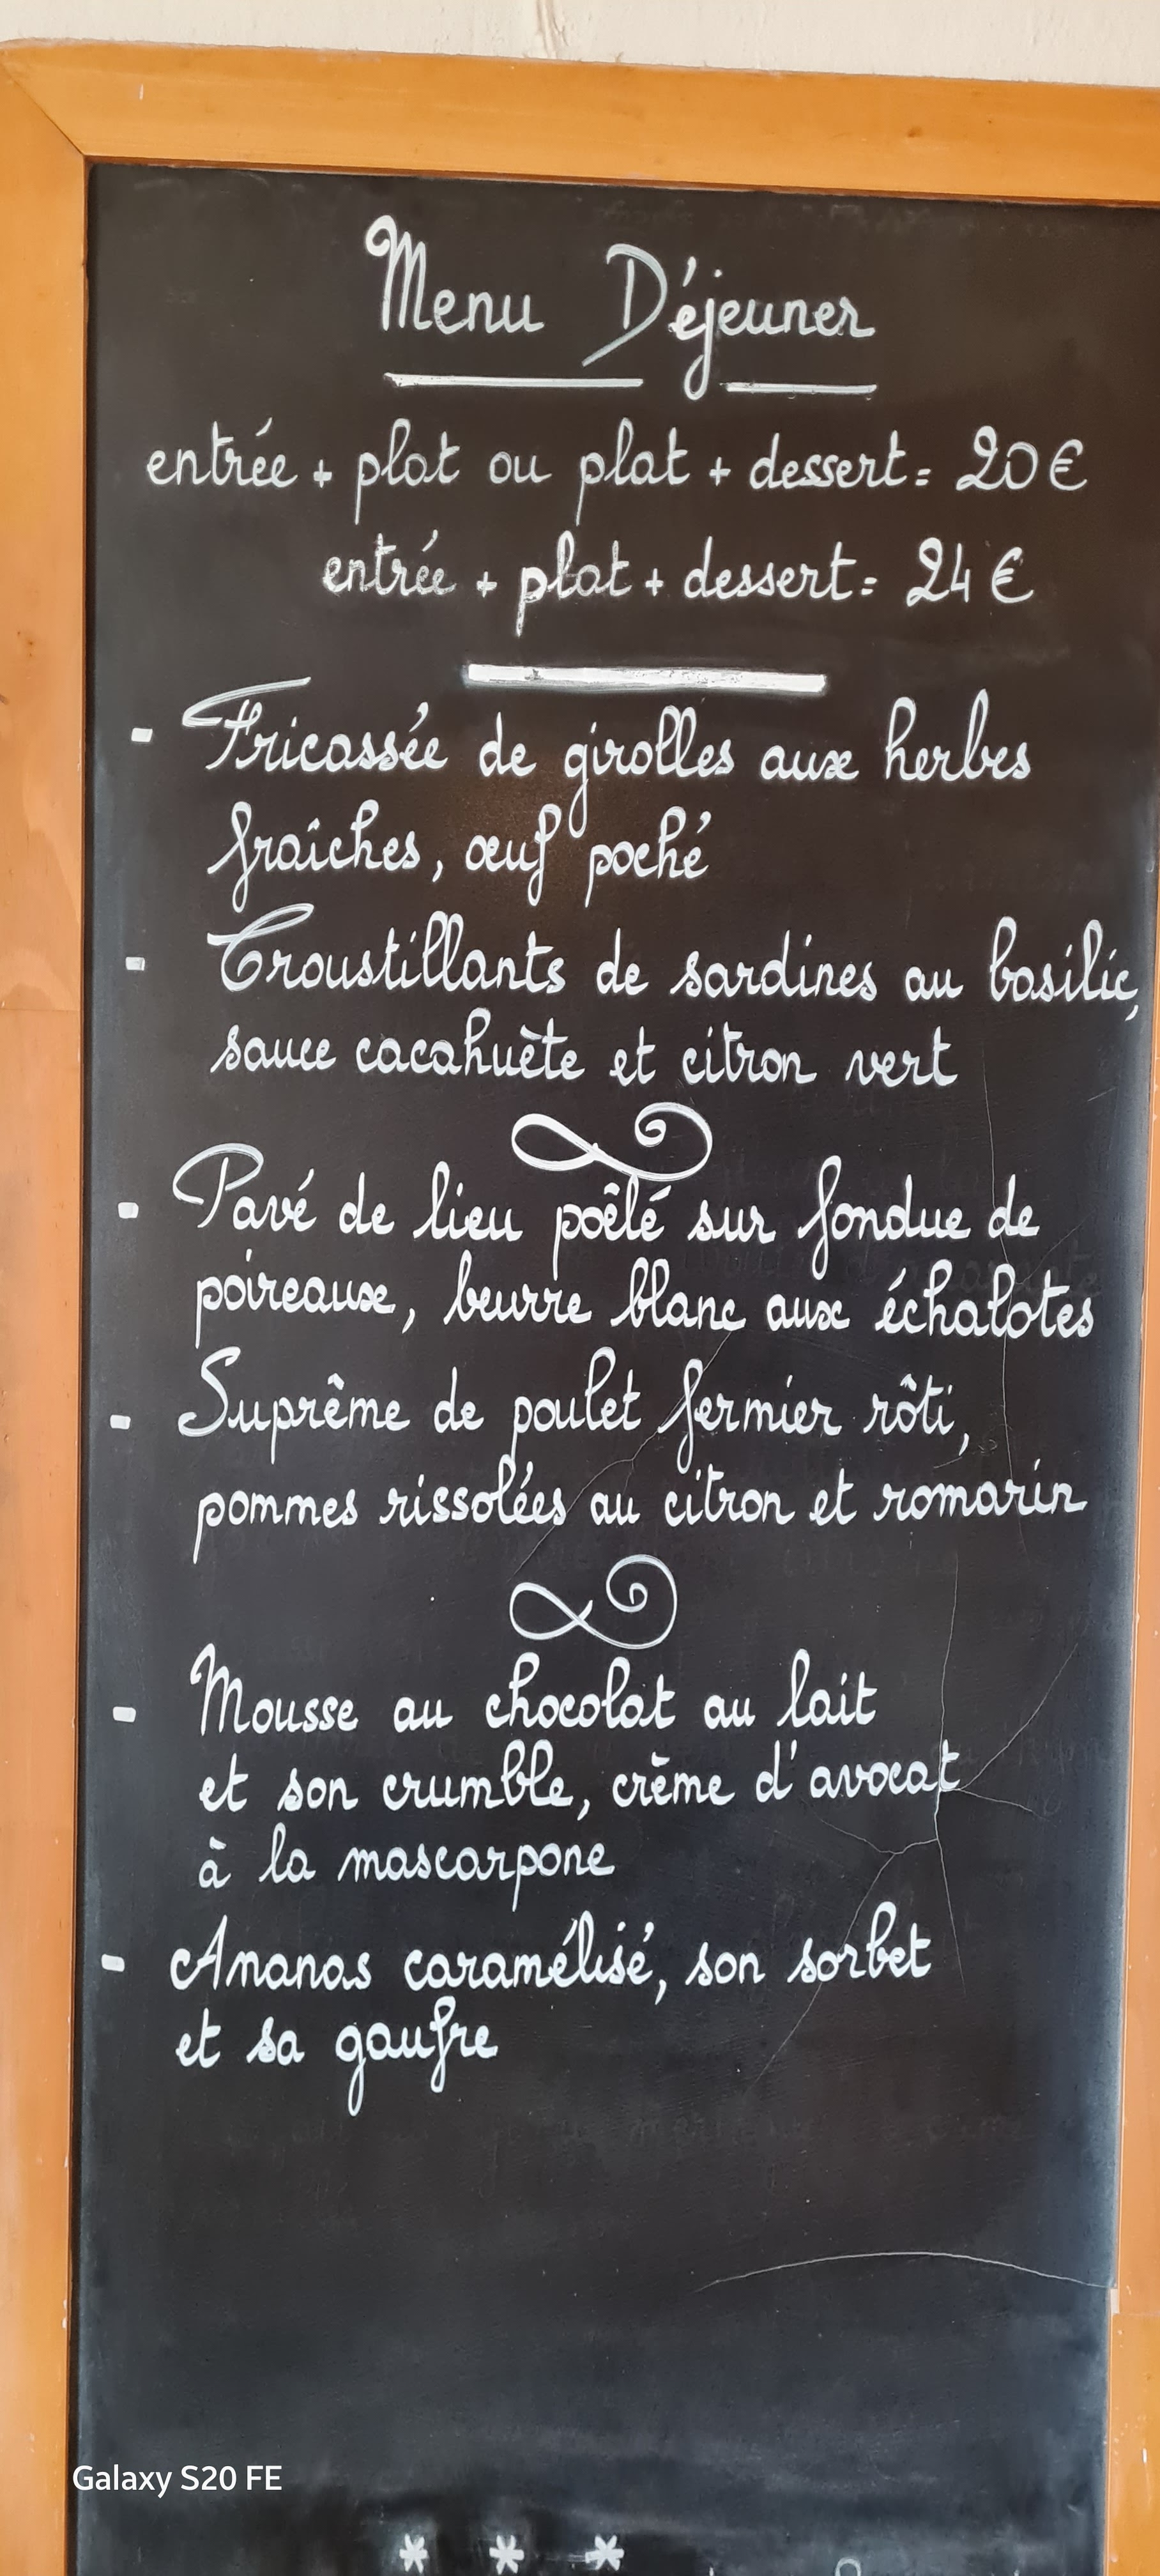 Menu Déjeuner
entrée + plat ou plat + dessert = 20 €
entrée + plat + dessert = 24 €
- Fricassée de girolles aux herbes
fraîches, œuf poché
- Croustillants de sardines au basilic,
sauce cacahuète et citron vert
- Pavé de lieu poêlé sur fondue de
poireaux, beurre blanc aux échalotes
- Suprême de poulet fermier rôti,
pommes rissolées au citron et romarin
- Mousse au chocolat au lait
et son crumble, crème d'avocat
à la mascarpone
- Ananas caramélisé, son sorbet
et sa gaufre
Galaxy S20 FE
* * *